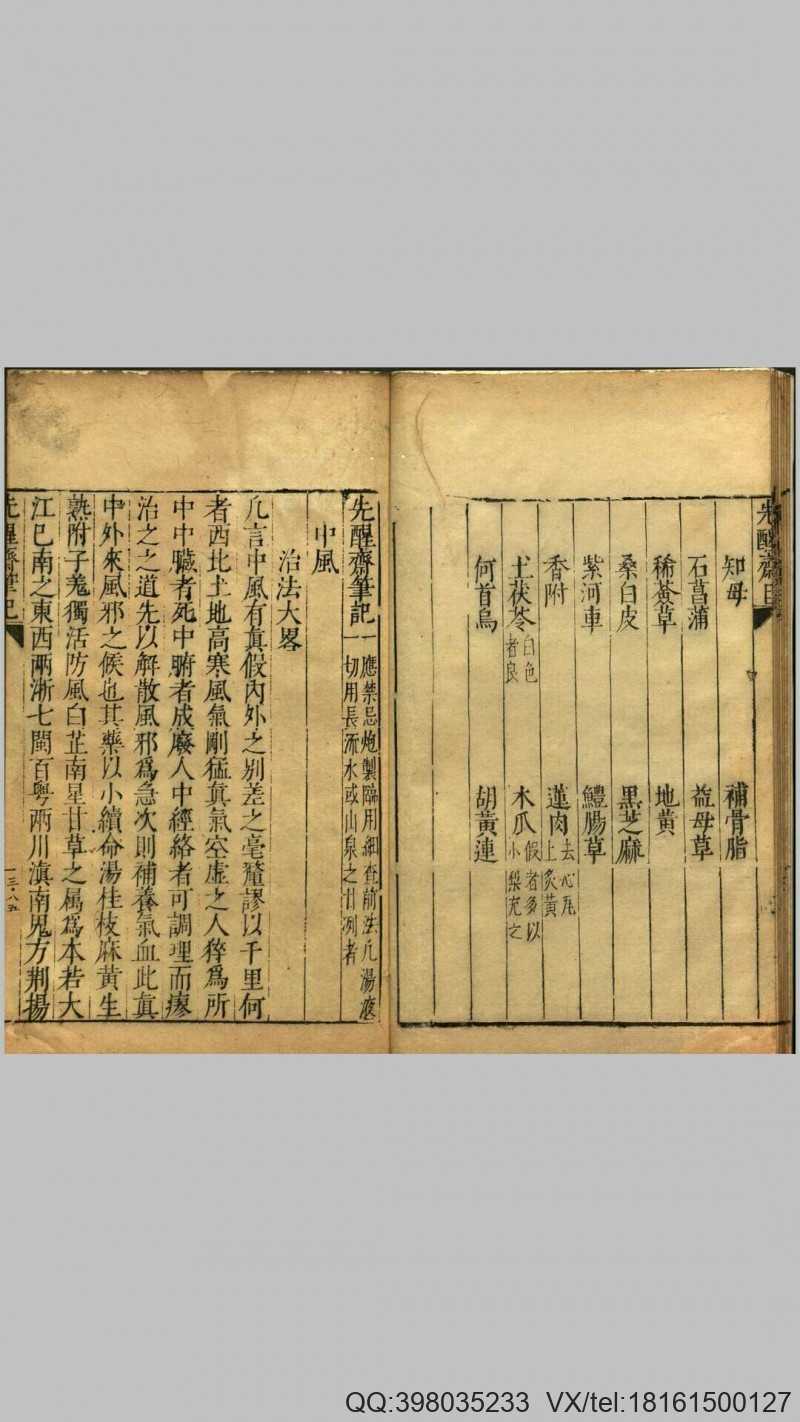 先醒齋目
知母　補骨脂
石菖蒲　益母草
稀薟草　地黃
桑白皮　黑芝麻
紫河車　鱧腸草
香附　蓮肉去心瓦上炙黃
土茯苓白色者良　木瓜假者多以小梨充之
何首烏　胡黃連
先醒齋筆記一應禁忌炮製臨用細查前法凡湯液一切用長流水或山泉之甘冽者
中風
治法大畧
凡言中風有真假內外之别差之毫釐謬以千里何
者西北土地高寒風氣剛猛真氣空虛之人猝爲所
中中臟者死中腑者成廢人中經絡者可調理而瘳
治之之道先以解散風邪爲急次則補養氣血此真
中外來風邪之候也其藥以小續命湯桂枝麻黃生
熟附子羗獨活防風白芷南星甘草之属爲本若大
江已南之東西兩浙七閩百粵兩川滇南鬼方荆揚
先醒齋筆記
QQ:398035233 VX/tel:18161500127